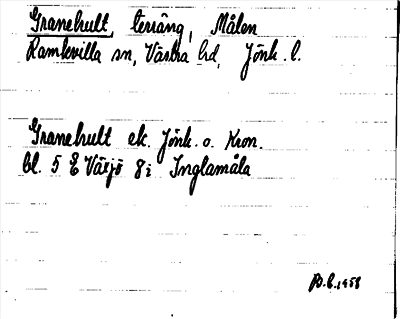 Granehult, terräng, Målen
Ramkvilla sn, Västra hd, Jönk. l.
Granehult ek. Jönk. o. Kron.
bl. 5 E Växjö 8i Inglamåla
1958